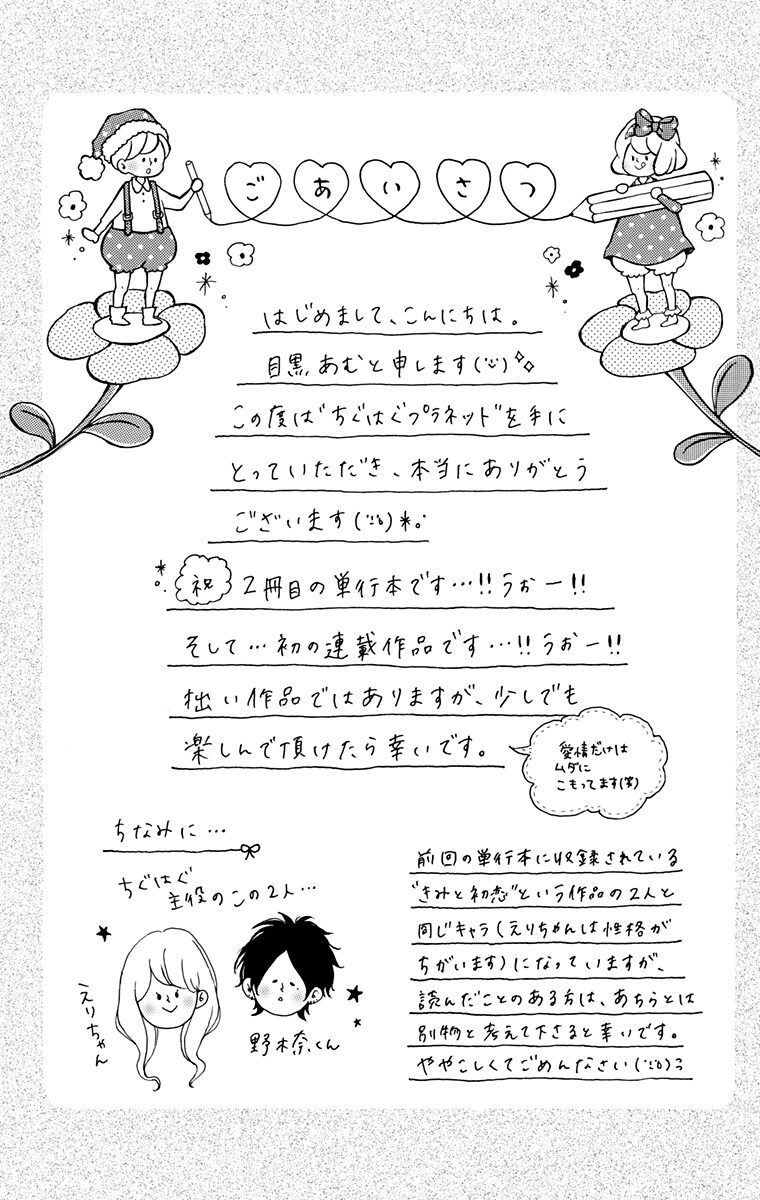 ごあいさつ
はじめまして、こんにちは。
目黒あむと申します(¨)
この度は"ちぐはぐプラネット"を手に
とっていただき、本当にありがとう
ございます(¨)*。
祝 2冊目の単行本です…!!うぉー!!
そして…初の連載作品です…!!うぉー!!
拙い作品ではありますが、少しでも
楽しんで頂けたら幸いです。
愛情だけは
ムダに
こもってます(笑)
ちなみに…
ちぐはぐ
主役のこの2人…
えりちゃん
野木奈くん
前回の単行本に収録されている
"きみと初恋"という作品の2人と
同じキャラ(えりちゃんは性格が
ちがいます)になっていますが、
読んだことのある方は、あちらとは
別物と考えて下さると幸いです。
ややこしくてごめんなさい